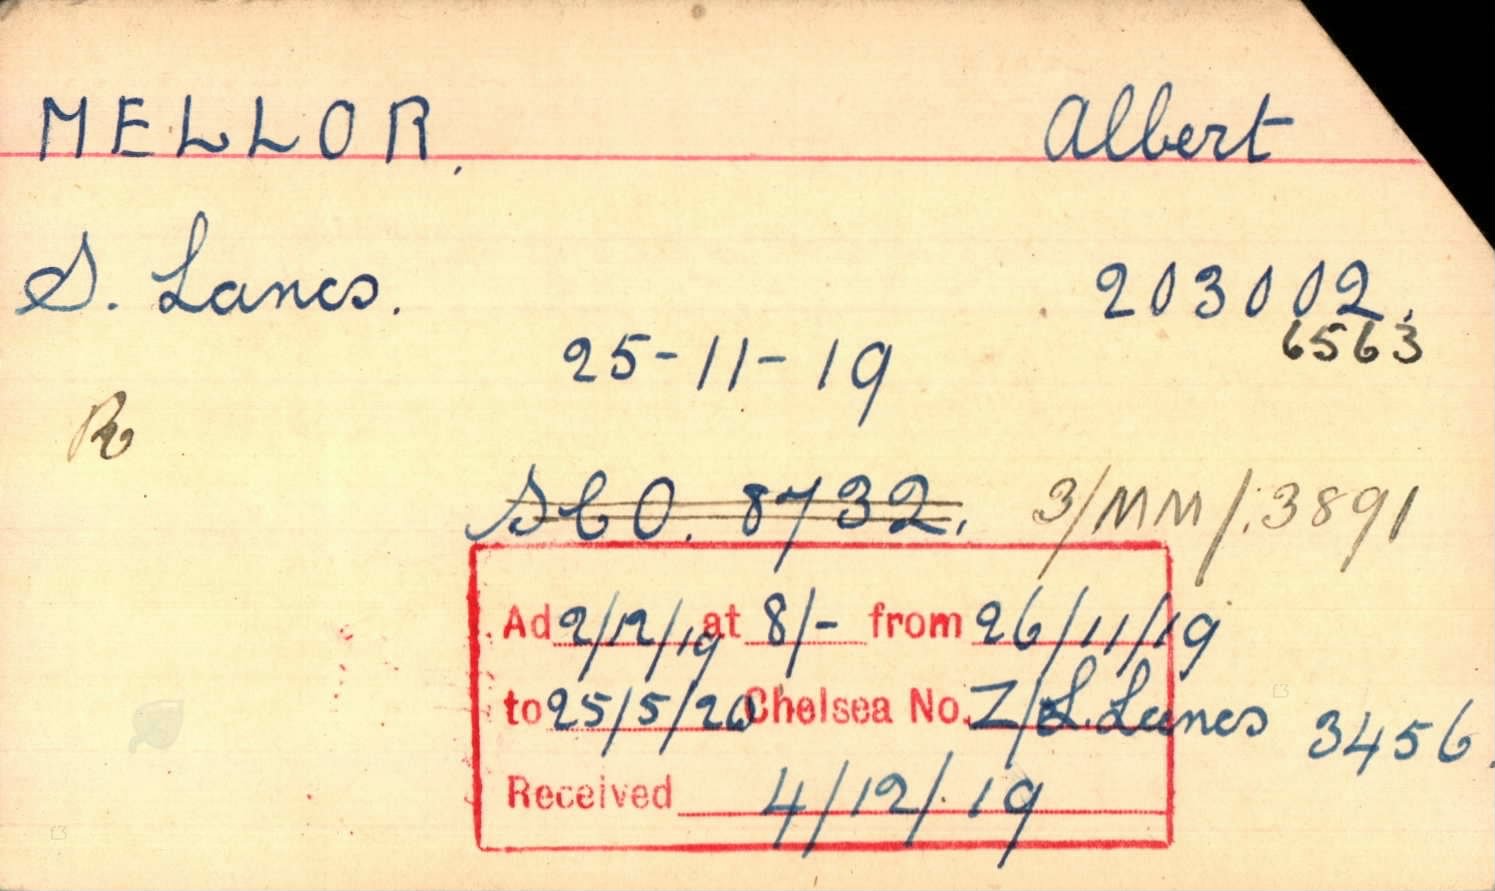 MELLOR. Albert
S. Lancs. 203002.
6563
25-11-19
R
SCO. 8732. 3/MM/.3891
Ad 2/12/19 at 8/- from 26/11/19
to 25/5/20 Chelsea No. Z/L.Lancs 3456.
Received 4/12/.19